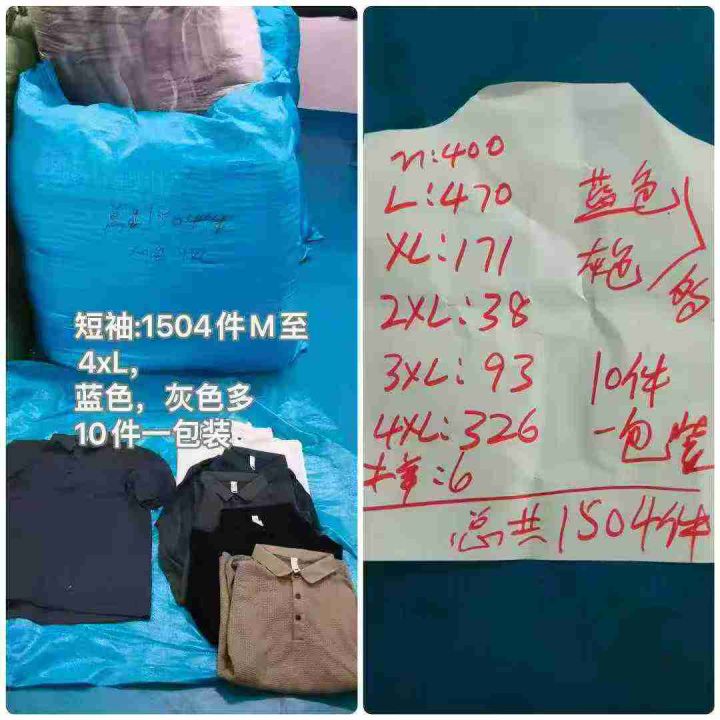 短袖:1504件M至
4xL,
蓝色，灰色多
10件一包装
M:400
L:470
XL:171
2XL:38
3XL:93
4XL:326
:6
蓝色
灰色
多
10件
一包装
总共1504件